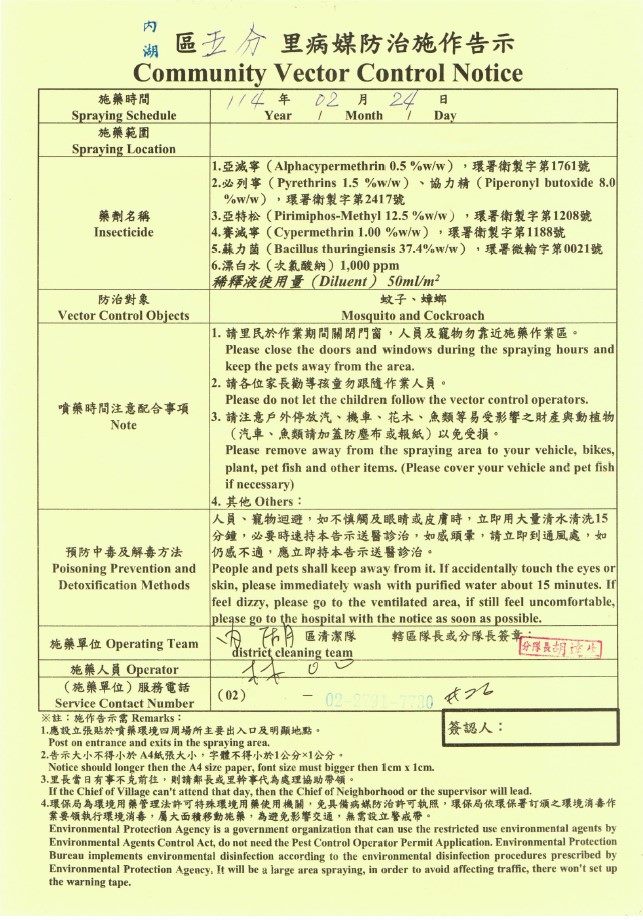 內湖
區 五分 里病媒防治施作告示
Community Vector Control Notice
施藥時間
Spraying Schedule
114 年 02 月 24 日
Year / Month / Day
施藥範圍
Spraying Location
藥劑名稱
Insecticide
1.亞滅寧（Alphacypermethrin 0.5 %w/w），環署衛製字第1761號
2.必列寧（Pyrethrins 1.5 %w/w）、協力精（Piperonyl butoxide 8.0
%w/w），環署衛製字第2417號
3.亞特松（Pirimiphos-Methyl 12.5 %w/w），環署衛製字第1208號
4.賽滅寧（Cypermethrin 1.00 %w/w），環署衛製字第1188號
5.蘇力菌（Bacillus thuringiensis 37.4%w/w），環署微輸字第0021號
6.漂白水（次氯酸納）1,000 ppm
稀釋液使用量（Diluent） 50ml/m²
防治對象
Vector Control Objects
蚊子、蟑螂
Mosquito and Cockroach
噴藥時間注意配合事項
Note
1. 請里民於作業期間關閉門窗，人員及寵物勿靠近施藥作業區。
Please close the doors and windows during the spraying hours and
keep the pets away from the area.
2. 請各位家長勸導孩童勿跟隨作業人員。
Please do not let the children follow the vector control operators.
3. 請注意戶外停放汽、機車、花木、魚類等易受影響之財產與動植物
（汽車、魚類請加蓋防塵布或報紙）以免受損。
Please remove away from the spraying area to your vehicle, bikes,
plant, pet fish and other items. (Please cover your vehicle and pet fish
if necessary)
4. 其他 Others：
預防中毒及解毒方法
Poisoning Prevention and
Detoxification Methods
人員、寵物迴避，如不慎觸及眼睛或皮膚時，立即用大量清水清洗15
分鐘，必要時速持本告示送醫診治，如感頭暈，請立即到通風處，如
仍感不適，應立即持本告示送醫診治。
People and pets shall keep away from it. If accidentally touch the eyes or
skin, please immediately wash with purified water about 15 minutes. If
feel dizzy, please go to the ventilated area, if still feel uncomfortable,
please go to the hospital with the notice as soon as possible.
施藥單位 Operating Team
內湖 區清潔隊 轄區隊長或分隊長簽章：
district cleaning team
分隊長胡
施藥人員 Operator
林
（施藥單位）服務電話
Service Contact Number
（02） － 02-2791-7780 #26
※註：施作告示需 Remarks：
1.應設立張貼於噴藥環境四周場所主要出入口及明顯地點。
Post on entrance and exits in the spraying area.
2.告示大小不得小於 A4紙張大小，字體不得小於1公分×1公分。
Notice should longer then the A4 size paper, font size must bigger then 1cm x 1cm.
3.里長當日有事不克前往，則請鄰長或里幹事代為處理協助帶領。
If the Chief of Village can't attend that day, then the Chief of Neighborhood or the supervisor will lead.
4.環保局為環境用藥管理法許可特殊環境用藥使用機關，免具備病媒防治許可執照，環保局依環保署訂頒之環境消毒作
業要領執行環境消毒，屬大面積移動施藥，為避免影響交通，無需設立警戒帶。
Environmental Protection Agency is a government organization that can use the restricted use environmental agents by
Environmental Agents Control Act, do not need the Pest Control Operator Permit Application. Environmental Protection
Bureau implements environmental disinfection according to the environmental disinfection procedures prescribed by
Environmental Protection Agency. It will be a large area spraying, in order to avoid affecting traffic, there won't set up
the warning tape.
簽認人：